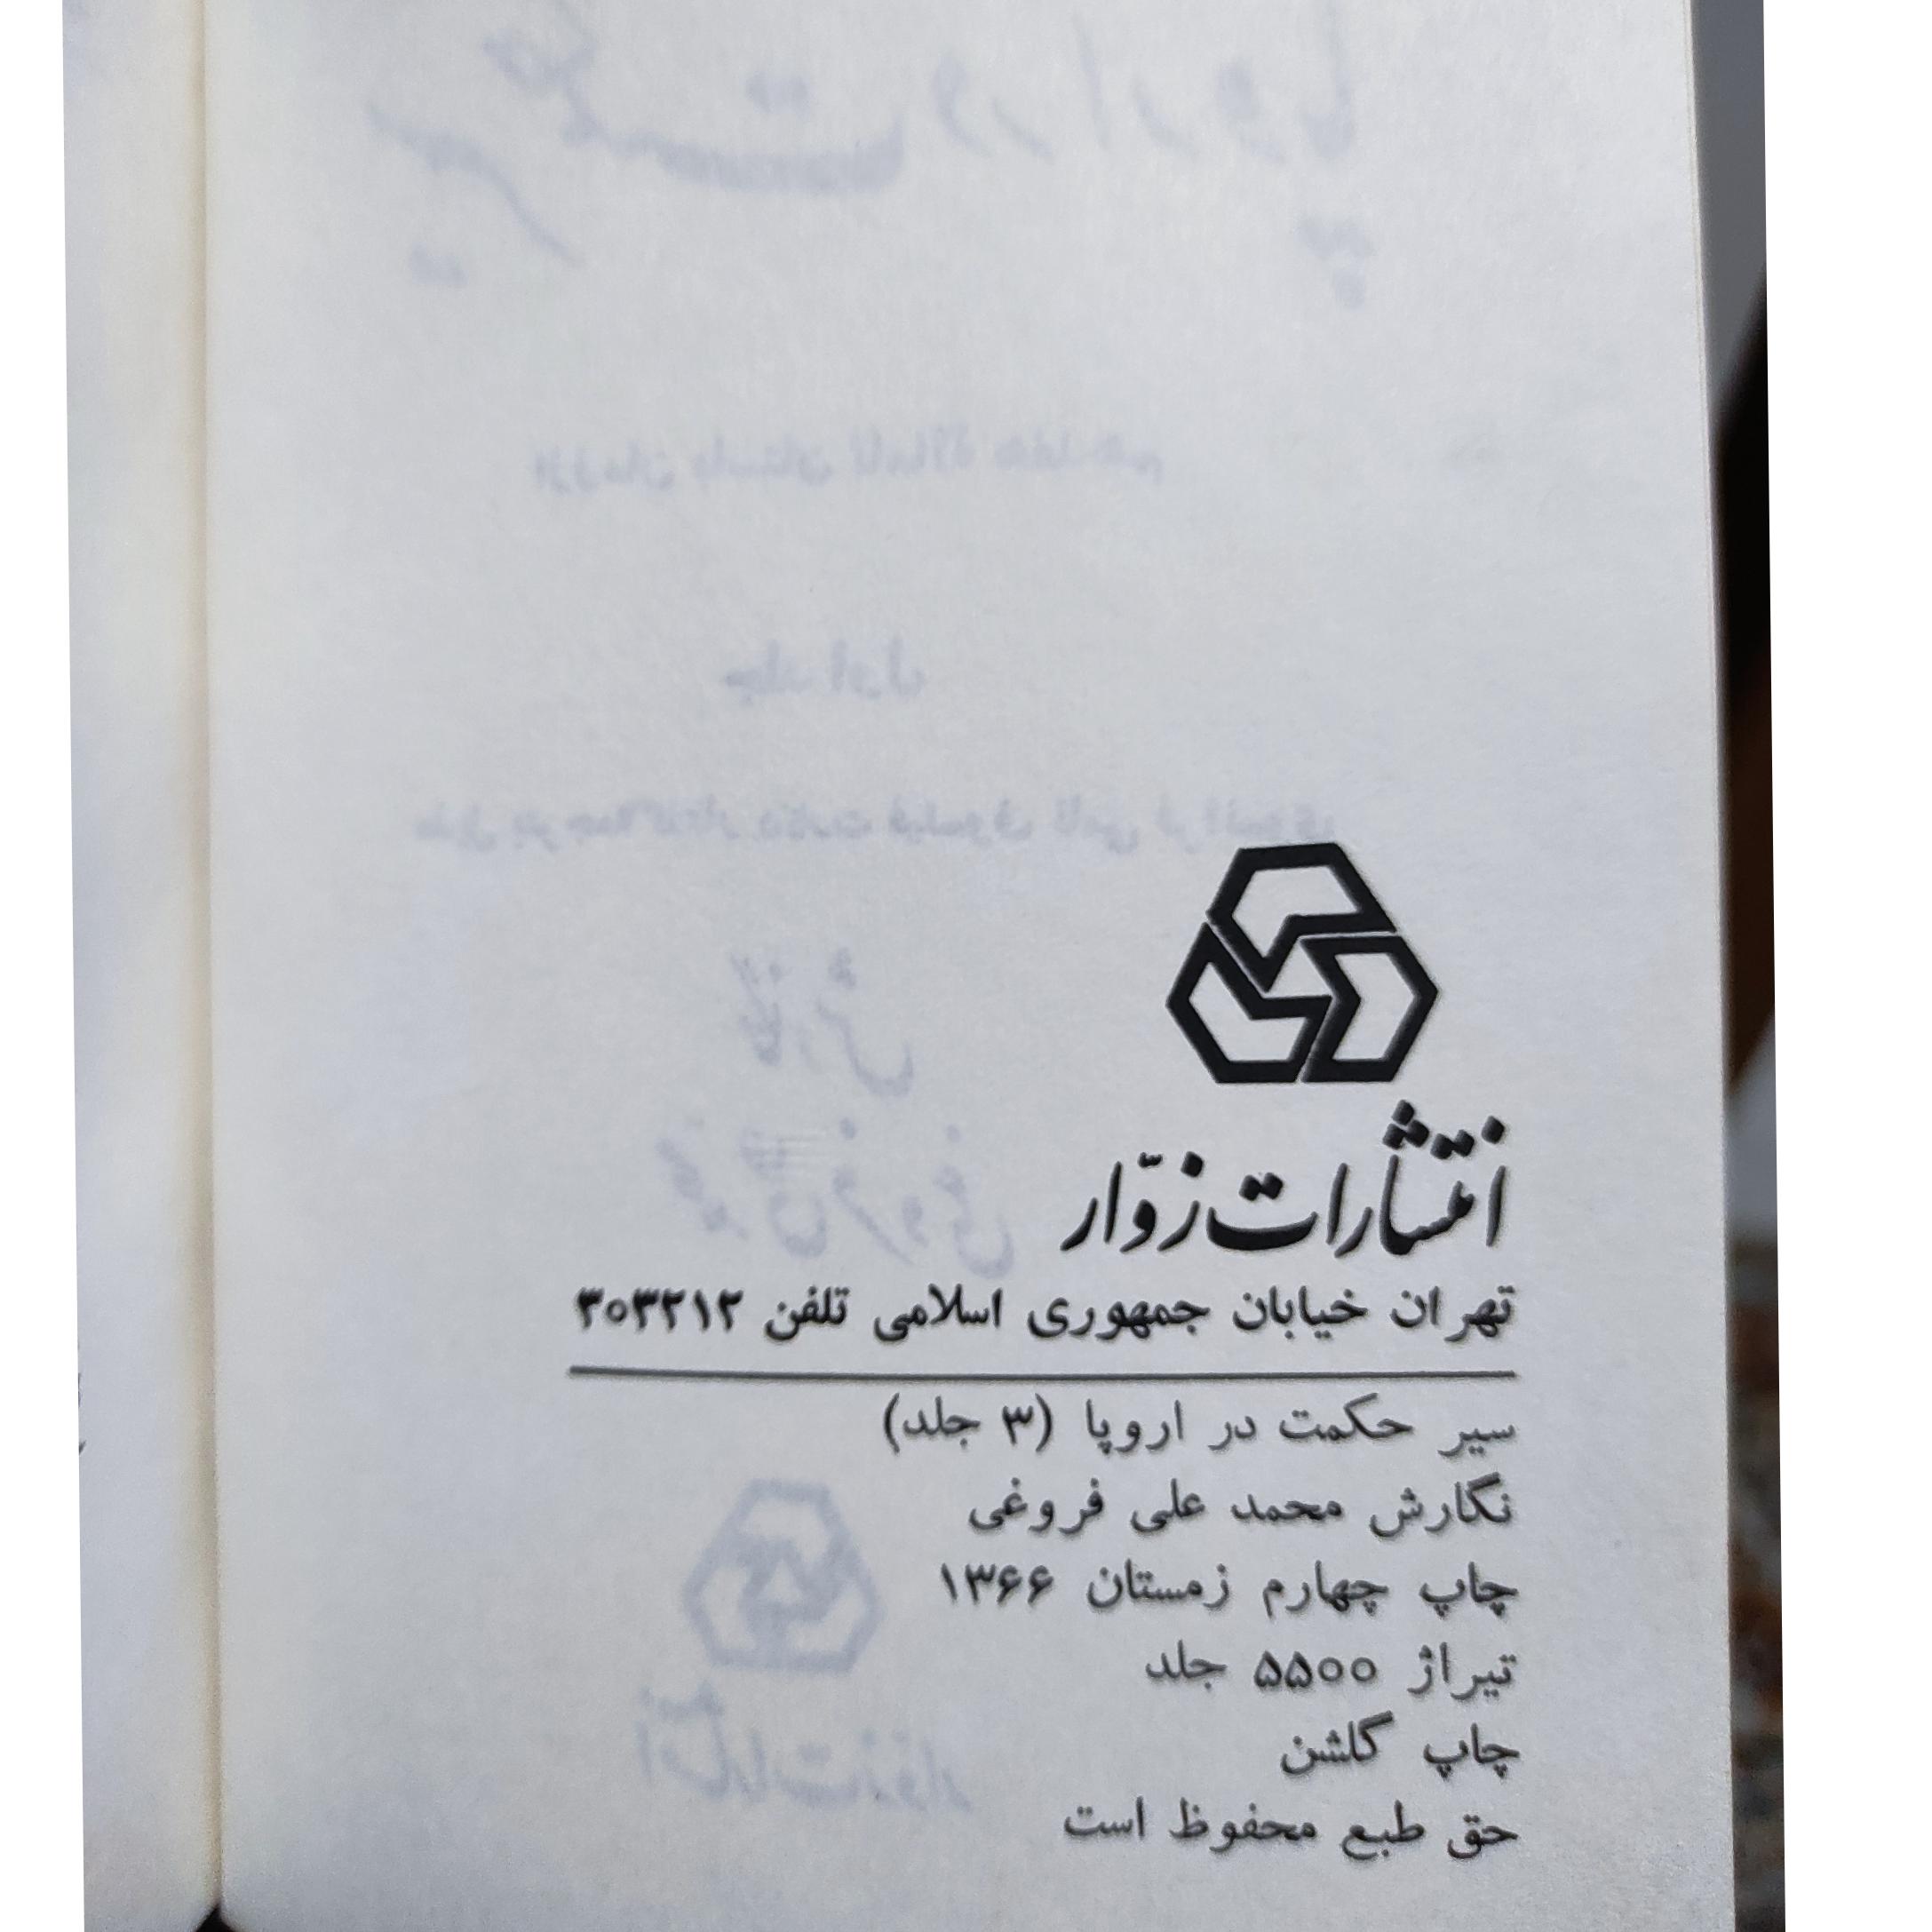 انتشارات زوّار
تهران خیابان جمهوری اسلامی تلفن ۳۰۳۲۱۲
سیر حکمت در اروپا (۳ جلد)
نگارش محمد علی فروغی
چاپ چهارم زمستان ۱۳۶۶
تیراژ ۵۵۰۰ جلد
چاپ گلشن
حق طبع محفوظ است